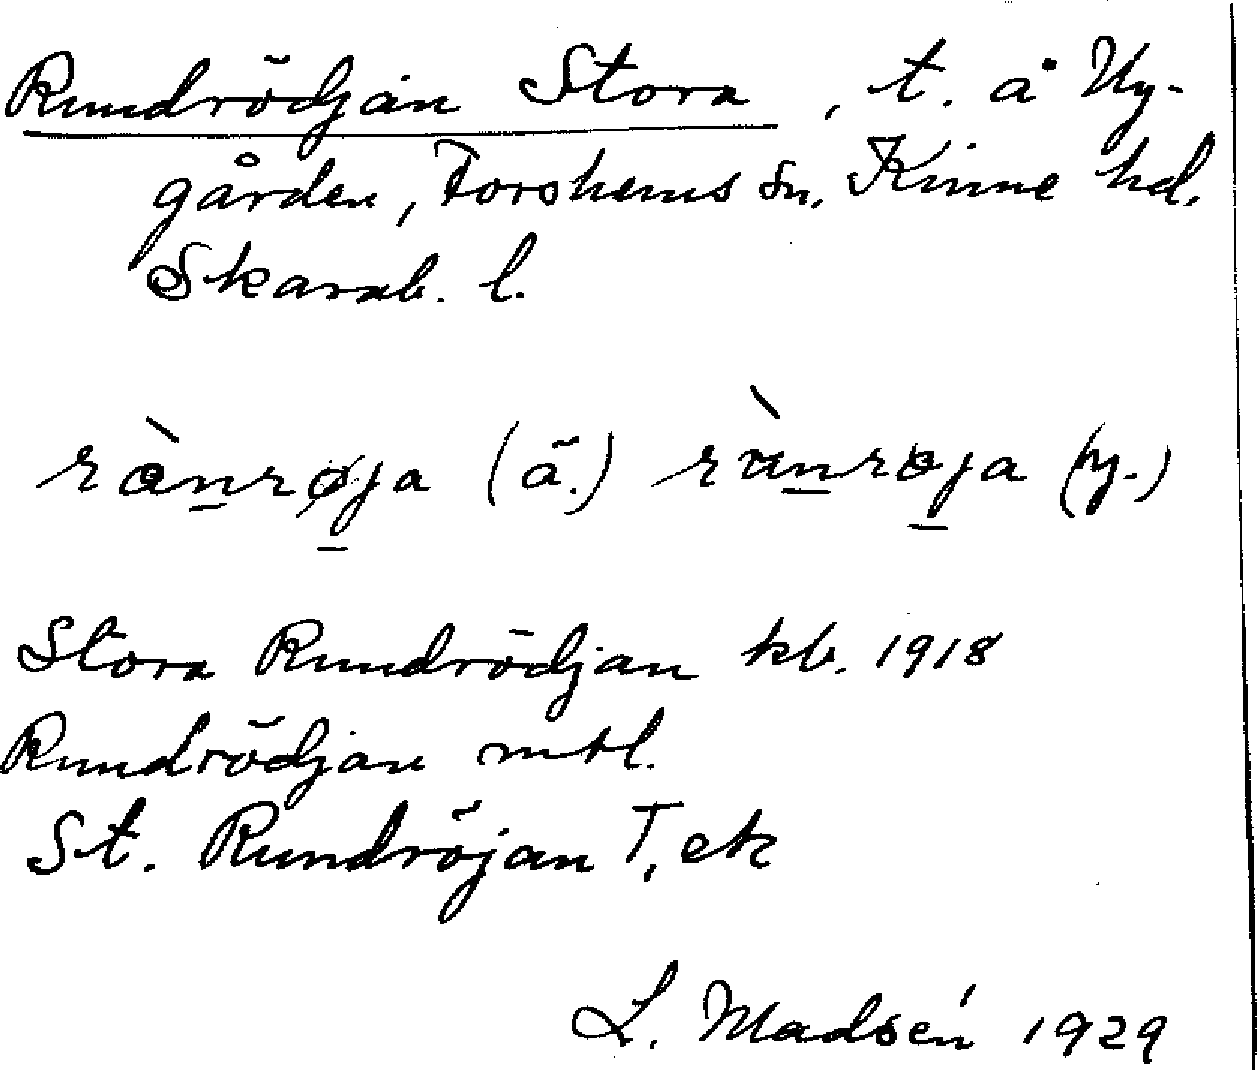 Rundrödjan Stora, t. å Ny-
gården, Forshems sn, Kinne hd.
Skarab. l.
rànrøja (ä.) rùnrøja (y.)
Stora Rundrödjan kb. 1918
Rundrödjan mtl.
St. Rundröjan T, ek
L. Madsén 1929